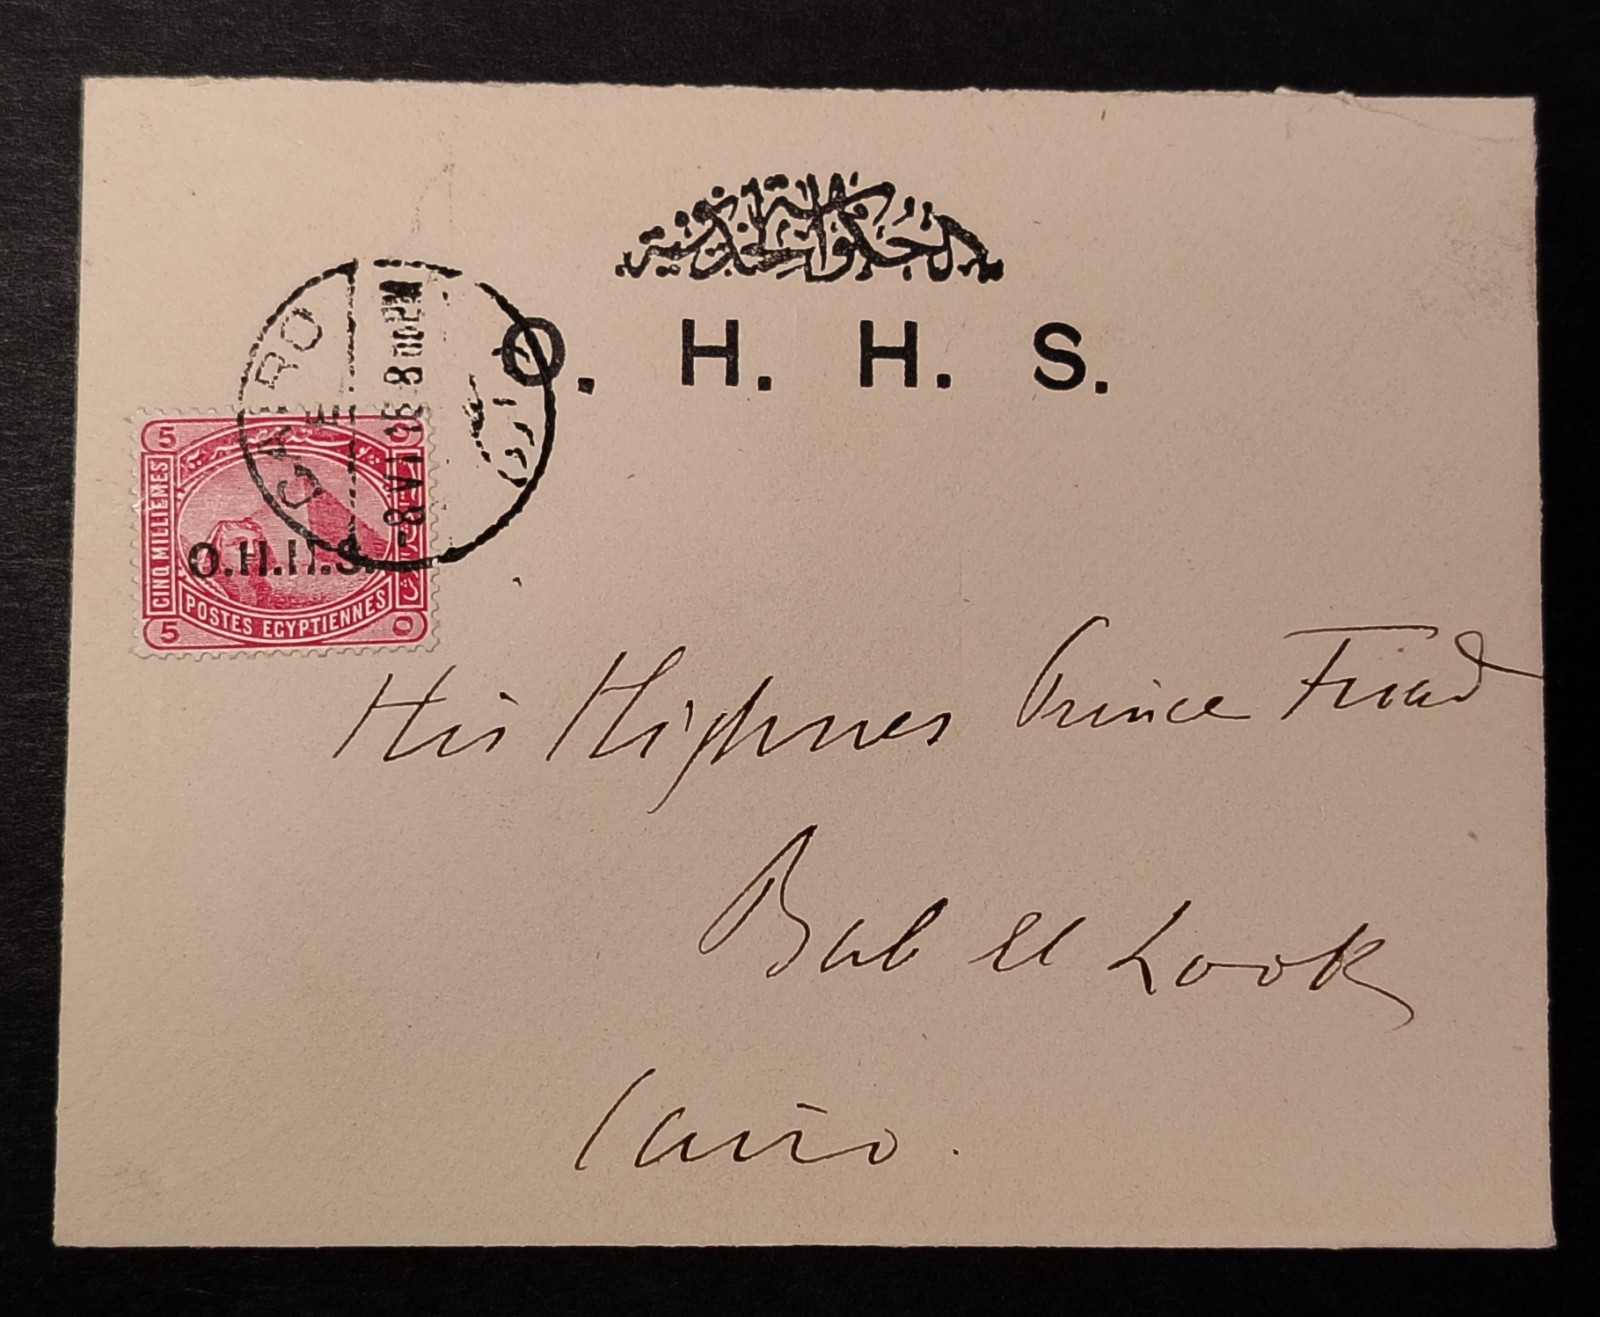 الحكومة الخديوية
O. H. H. S.
CAIRO
E
-8 VI 13 8 00 PM
5
CINQ MILLIEMES
O.H.H.S.
POSTES EGYPTIENNES
5
٥
His Highness Prince Fuad
Bab el Look
Cairo.